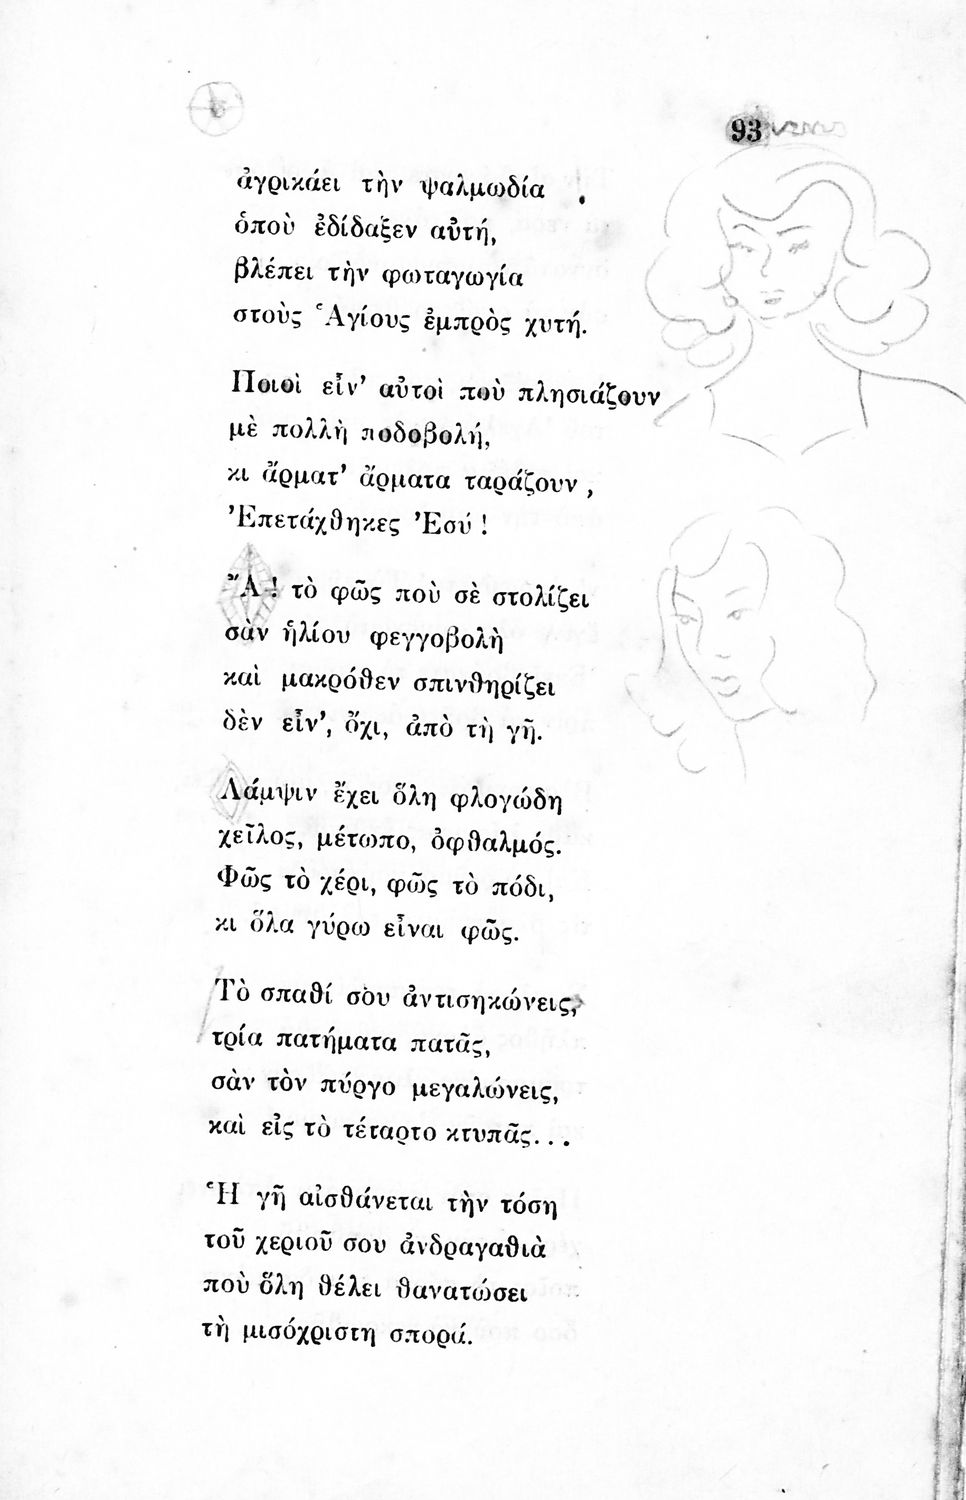 93
ἀγρικάει τὴν ψαλμωδία
ὁποὺ ἐδίδαξεν αὐτή,
βλέπει τὴν φωταγωγία
στοὺς Ἁγίους ἐμπρὸς χυτή.
Ποιοὶ εἶν’ αὐτοὶ ποὺ πλησιάζουν
μὲ πολλὴ ποδοβολή,
κι ἄρματ’ ἄρματα ταράζουν,
Ἐπετάχθηκες Ἐσύ!
Ἄ! τὸ φῶς ποὺ σὲ στολίζει
σὰν ἡλίου φεγγοβολὴ
καὶ μακρόθεν σπινθηρίζει
δὲν εἶν’, ὄχι, ἀπὸ τὴ γῆ.
Λάμψιν ἔχει ὅλη φλογώδη
χεῖλος, μέτωπο, ὀφθαλμός.
Φῶς τὸ χέρι, φῶς τὸ πόδι,
κι ὅλα γύρω εἶναι φῶς.
Τὸ σπαθί σου ἀντισηκώνεις,
τρία πατήματα πατᾶς,
σὰν τὸν πύργο μεγαλώνεις,
καὶ εἰς τὸ τέταρτο κτυπᾶς...
Ἡ γῆ αἰσθάνεται τὴν τόση
τοῦ χεριοῦ σου ἀνδραγαθιὰ
ποὺ ὅλη θέλει θανατώσει
τὴ μισόχριστη σπορά.